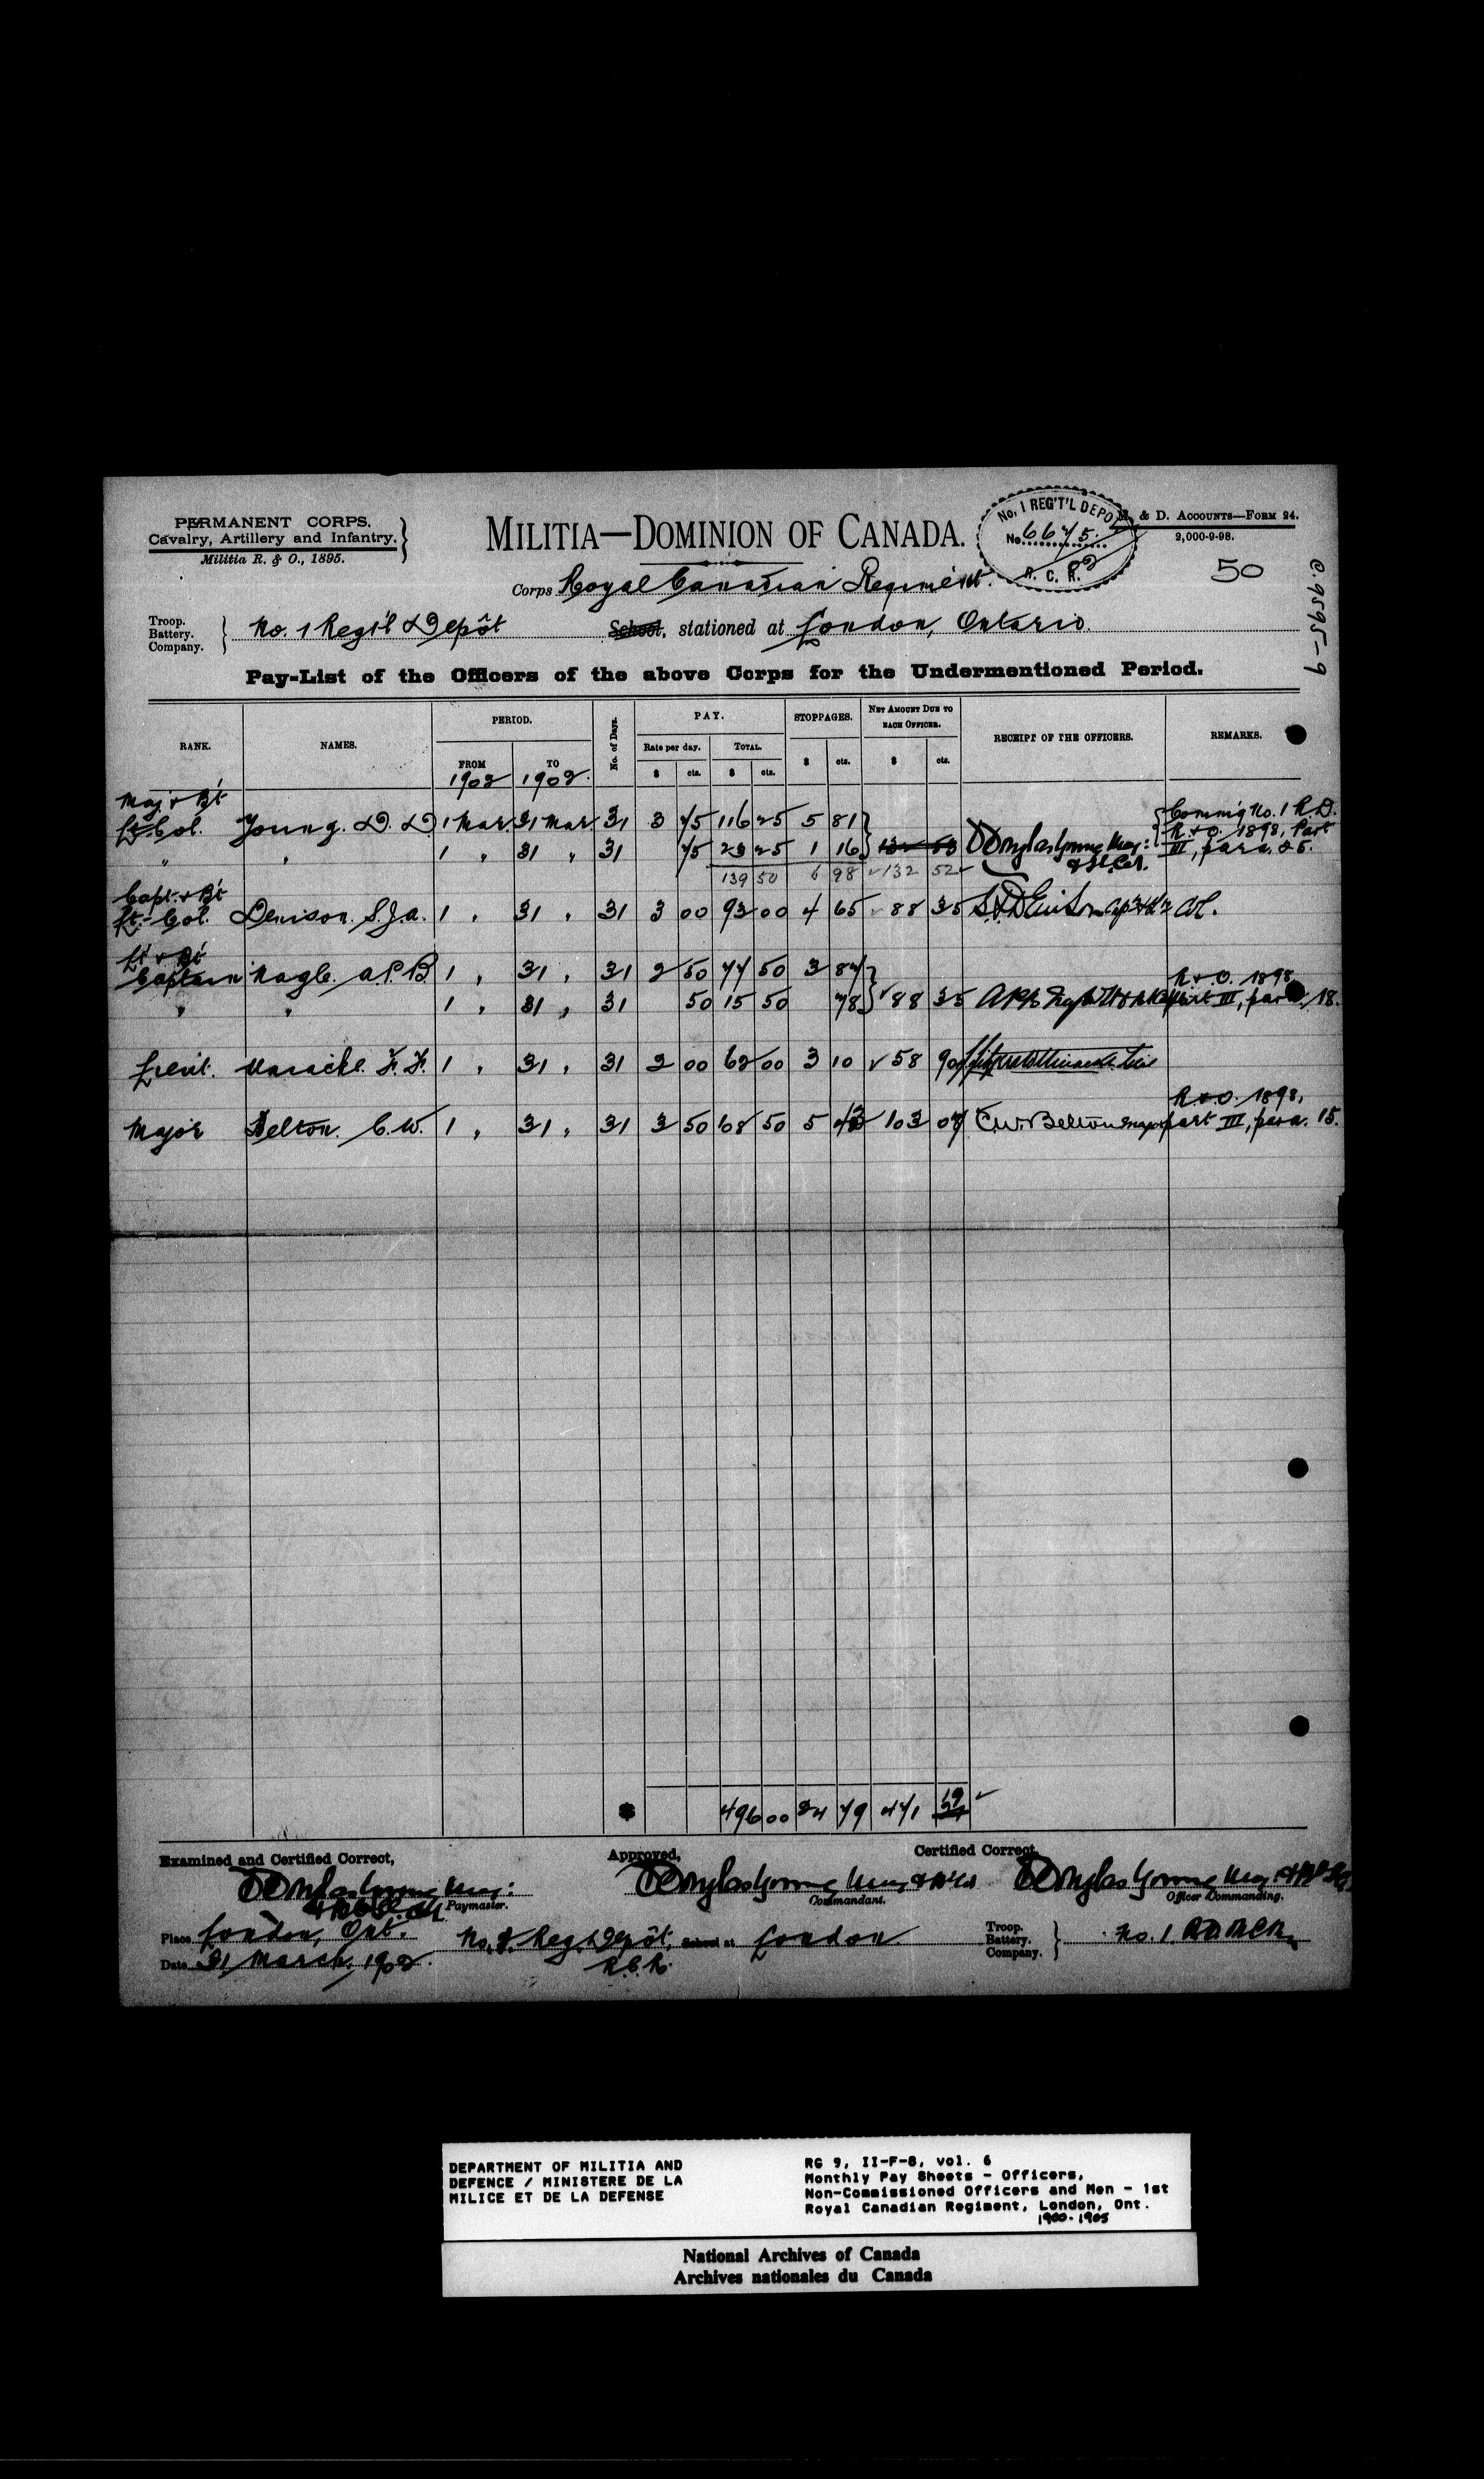 PERMANENT CORPS.
Cavalry, Artillery and Infantry.
Militia R. & O., 1895.
MILITIA—DOMINION OF CANADA.
No. 1 REG'T'L DEPOT
No. 6675
R. C. R.
M. & D. ACCOUNTS—FORM 24.
2,000-9-98.
50
C. 9595-9
Corps Royal Canadian Regiment.
Troop.
Battery.
Company.
No. 1 Reg'l Depôt School, stationed at London, Ontario.
Pay-List of the Officers of the above Corps for the Undermentioned Period.
RANK. NAMES. PERIOD. No. of Days. PAY. STOPPAGES. NET AMOUNT DUE TO EACH OFFICER. RECEIPT OF THE OFFICERS. REMARKS.
Rate per day. TOTAL.
FROM TO $ cts. $ cts. $ cts. $ cts.
1902 1902.
Maj. & Bt
Lt. Col. Young. D. D 1 Mar. 31 Mar. 31 3 75 116 25 5 81 Comm'g No. 1 R.D.
" " 1 " 31 " 31 75 23 25 1 16 132 53 D Douglas Young Maj: R. & O. 1898, Part
139 50 6 98 132 52 & Lt. Col. III, para. 25.
Capt. & Bt
Lt.-Col. Denison. S.J.A. 1 " 31 " 31 3 00 93 00 4 65 88 35 Col.
Lt & Bt
Captain Nagle. A.P.B. 1 " 31 " 31 2 50 77 50 3 87 R & O. 1898
" " 1 " 31 " 31 50 15 50 78 88 35 part III, para. 18.
Lieut. F. F. 1 " 31 " 31 2 00 62 00 3 10 58 90
Major Belton. C. W. 1 " 31 " 31 3 50 108 50 5 43 103 07 C.W. Belton Major R & O. 1898,
part III, para. 15.
$ 496 00 24 79 471 19
Examined and Certified Correct, Approved, Certified Correct,
D Douglas Young Maj: D Douglas Young Maj & D Douglas Young Maj &
Paymaster. Commandant. Officer Commanding.
Place London, Ont. No. 1 Reg. Depôt, School at London Troop.
Battery.
Company.
No. 1
Date 31 March, 1902. R.C.R.
DEPARTMENT OF MILITIA AND
DEFENCE / MINISTERE DE LA
MILICE ET DE LA DEFENSE
RG 9, II-F-8, vol. 6
Monthly Pay Sheets - Officers,
Non-Commissioned Officers and Men - 1st
Royal Canadian Regiment, London, Ont.
1900-1905
National Archives of Canada
Archives nationales du Canada